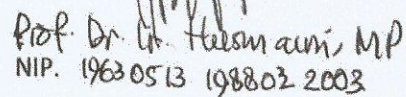 Prof. Dr. Ir. Husmaini, MP
NIP. 19630513 198802 2003